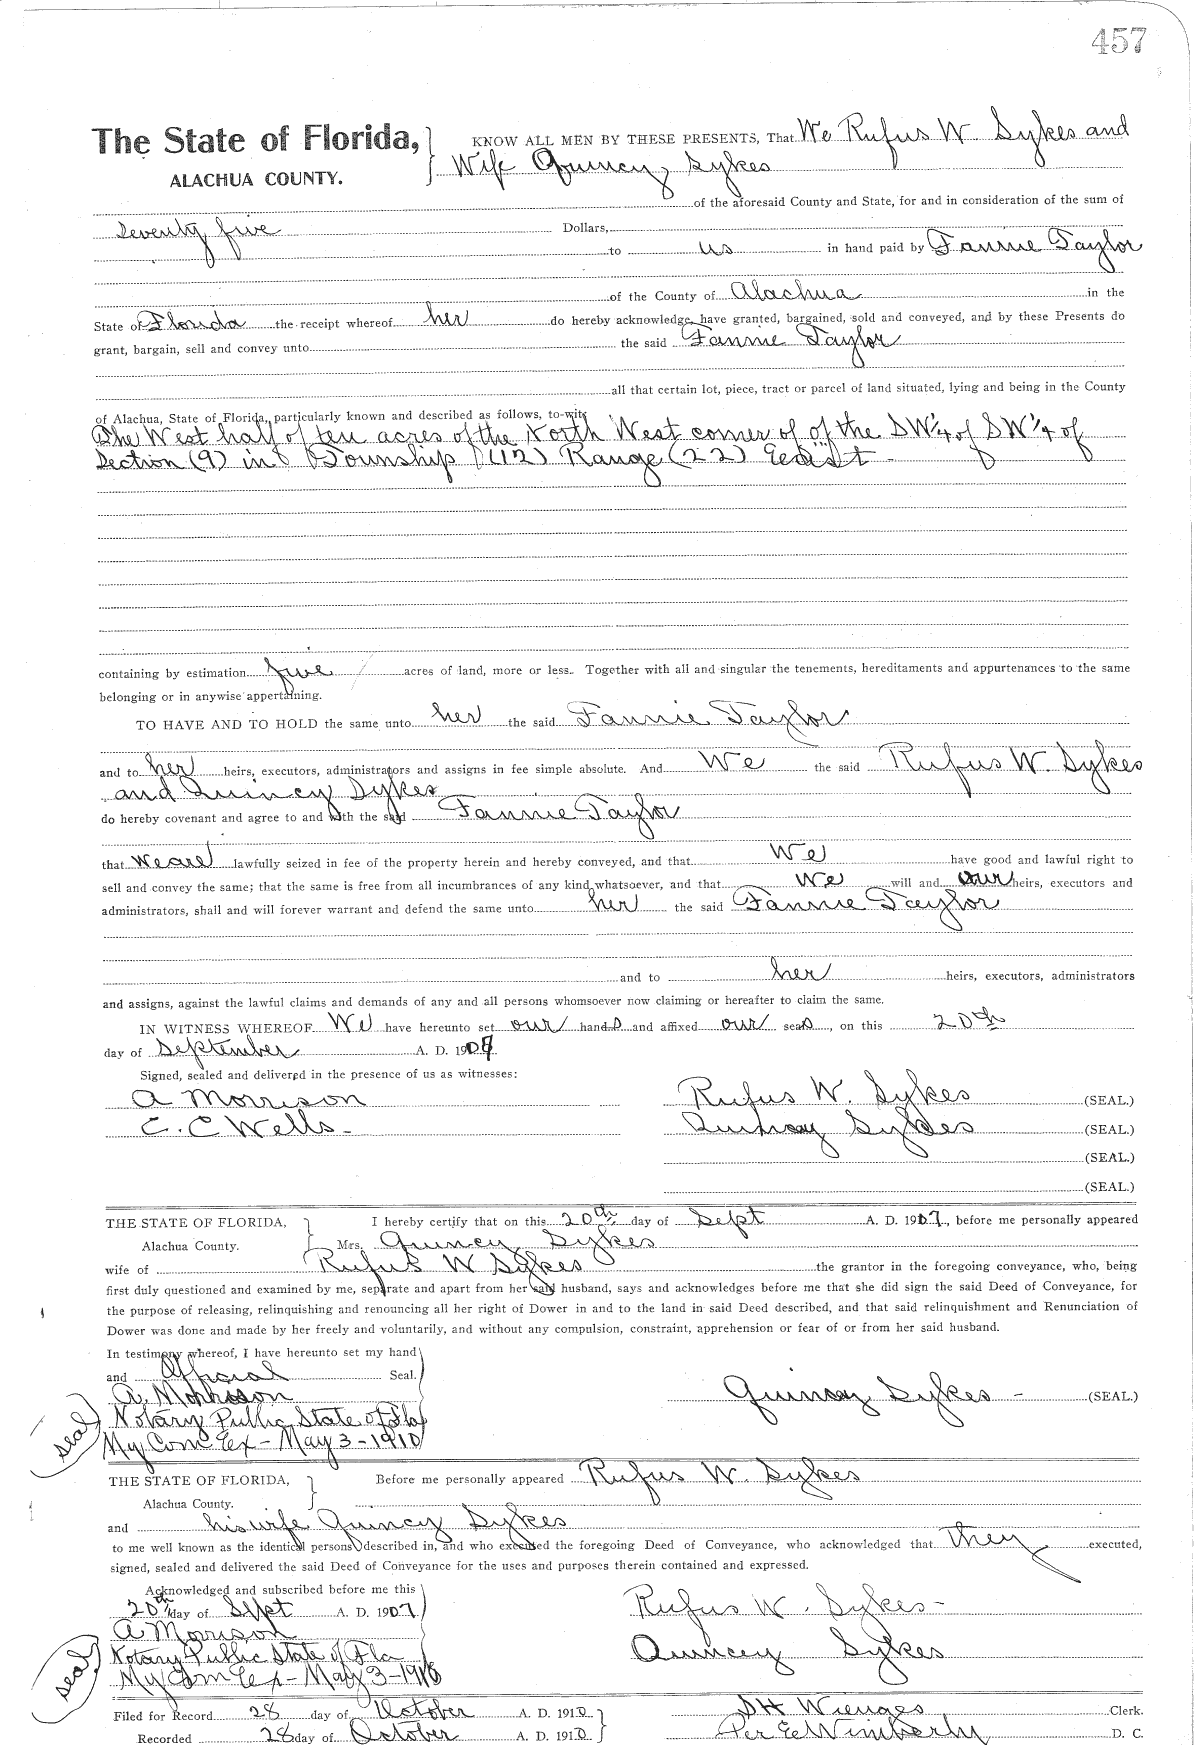 457
The State of Florida, KNOW ALL MEN BY THESE PRESENTS, That We Rufus W Sykes and
ALACHUA COUNTY. Wife Quincy Sykes
of the aforesaid County and State, for and in consideration of the sum of
Seventy five Dollars,
to us in hand paid by Fannie Taylor
of the County of Alachua in the
State of Florida the receipt whereof her do hereby acknowledge, have granted, bargained, sold and conveyed, and by these Presents do
grant, bargain, sell and convey unto the said Fannie Taylor
all that certain lot, piece, tract or parcel of land situated, lying and being in the County
of Alachua, State of Florida, particularly known and described as follows, to-wit:
The West half of ten acres of the North West corner of of the SW 1/4 of SW 1/4 of
Section (9) in Township (12) Range (22) East
containing by estimation five acres of land, more or less. Together with all and singular the tenements, hereditaments and appurtenances to the same
belonging or in anywise appertaining.
TO HAVE AND TO HOLD the same unto her the said Fannie Taylor
and to her heirs, executors, administrators and assigns in fee simple absolute. And We the said Rufus W. Sykes
and Quincy Sykes
do hereby covenant and agree to and with the said Fannie Taylor
that we are lawfully seized in fee of the property herein and hereby conveyed, and that We have good and lawful right to
sell and convey the same; that the same is free from all incumbrances of any kind whatsoever, and that We will and our heirs, executors and
administrators, shall and will forever warrant and defend the same unto her the said Fannie Taylor
and to her heirs, executors, administrators
and assigns, against the lawful claims and demands of any and all persons whomsoever now claiming or hereafter to claim the same.
IN WITNESS WHEREOF We have hereunto set our hands and affixed our seals, on this 20th
day of September A. D. 1907
Signed, sealed and delivered in the presence of us as witnesses:
A Morrison Rufus W. Sykes (SEAL.)
C. C Wells - Quincy Sykes (SEAL.)
(SEAL.)
(SEAL.)
THE STATE OF FLORIDA, I hereby certify that on this 20th day of Sept A. D. 1907, before me personally appeared
Alachua County. Mrs. Quincy Sykes
wife of Rufus W Sykes the grantor in the foregoing conveyance, who, being
first duly questioned and examined by me, separate and apart from her said husband, says and acknowledges before me that she did sign the said Deed of Conveyance, for
the purpose of releasing, relinquishing and renouncing all her right of Dower in and to the land in said Deed described, and that said relinquishment and Renunciation of
Dower was done and made by her freely and voluntarily, and without any compulsion, constraint, apprehension or fear of or from her said husband.
In testimony whereof, I have hereunto set my hand
and Official Seal.
A. Morrison Quincey Sykes - (SEAL.)
seal Notary Public State of Fla
My Com Ex - May 3 - 1910
THE STATE OF FLORIDA, Before me personally appeared Rufus W. Sykes
Alachua County.
and his wife Quincy Sykes
to me well known as the identical persons described in, and who executed the foregoing Deed of Conveyance, who acknowledged that They executed,
signed, sealed and delivered the said Deed of Conveyance for the uses and purposes therein contained and expressed.
Acknowledged and subscribed before me this
20th day of Sept A. D. 1907 Rufus W. Sykes -
A Morrison
seal Notary Public State of Fla Quincey Sykes
My Com Ex - May 3 - 1910
Filed for Record 28 day of October A. D. 1910 S H Wienges Clerk.
Recorded 28 day of October A. D. 1910 Per E Wimberly D. C.